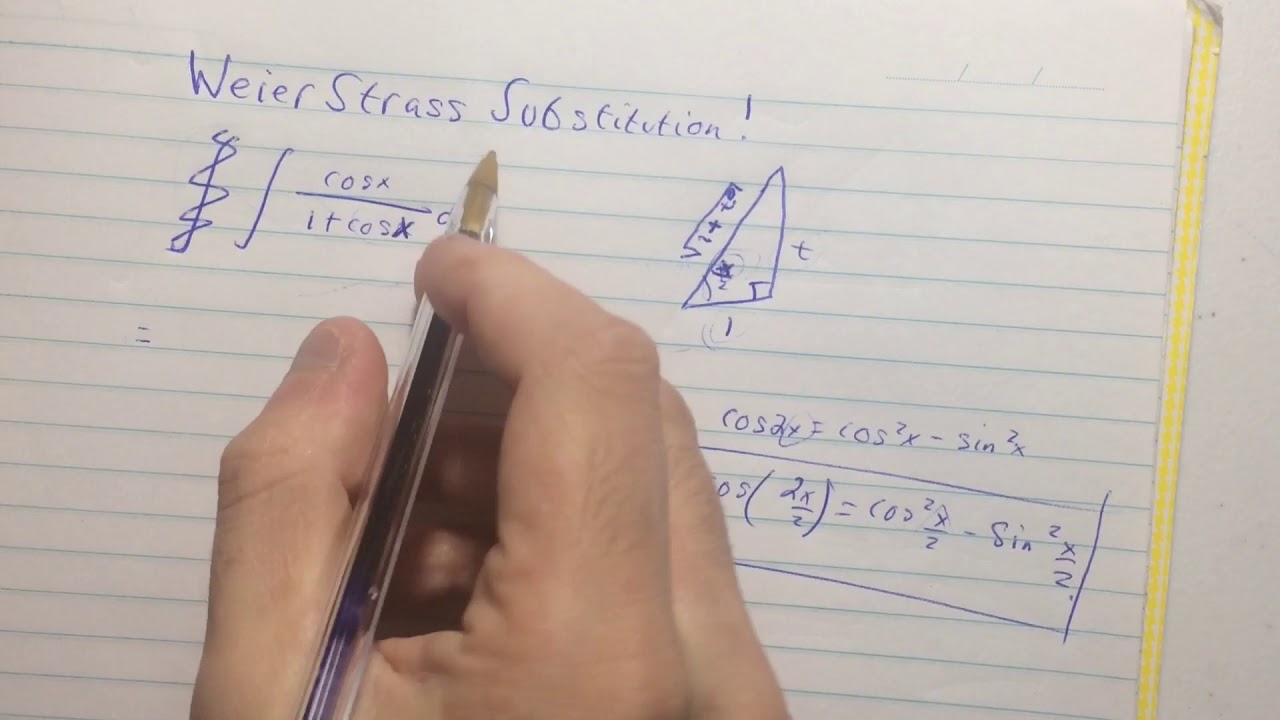 WeierStrass Substitution!
∫ cosx / 1+cosx
√1+t²
x/2
t
1
=
cos2x = cos²x - sin²x
os(2x/2) = cos² x/2 - Sin² x/2